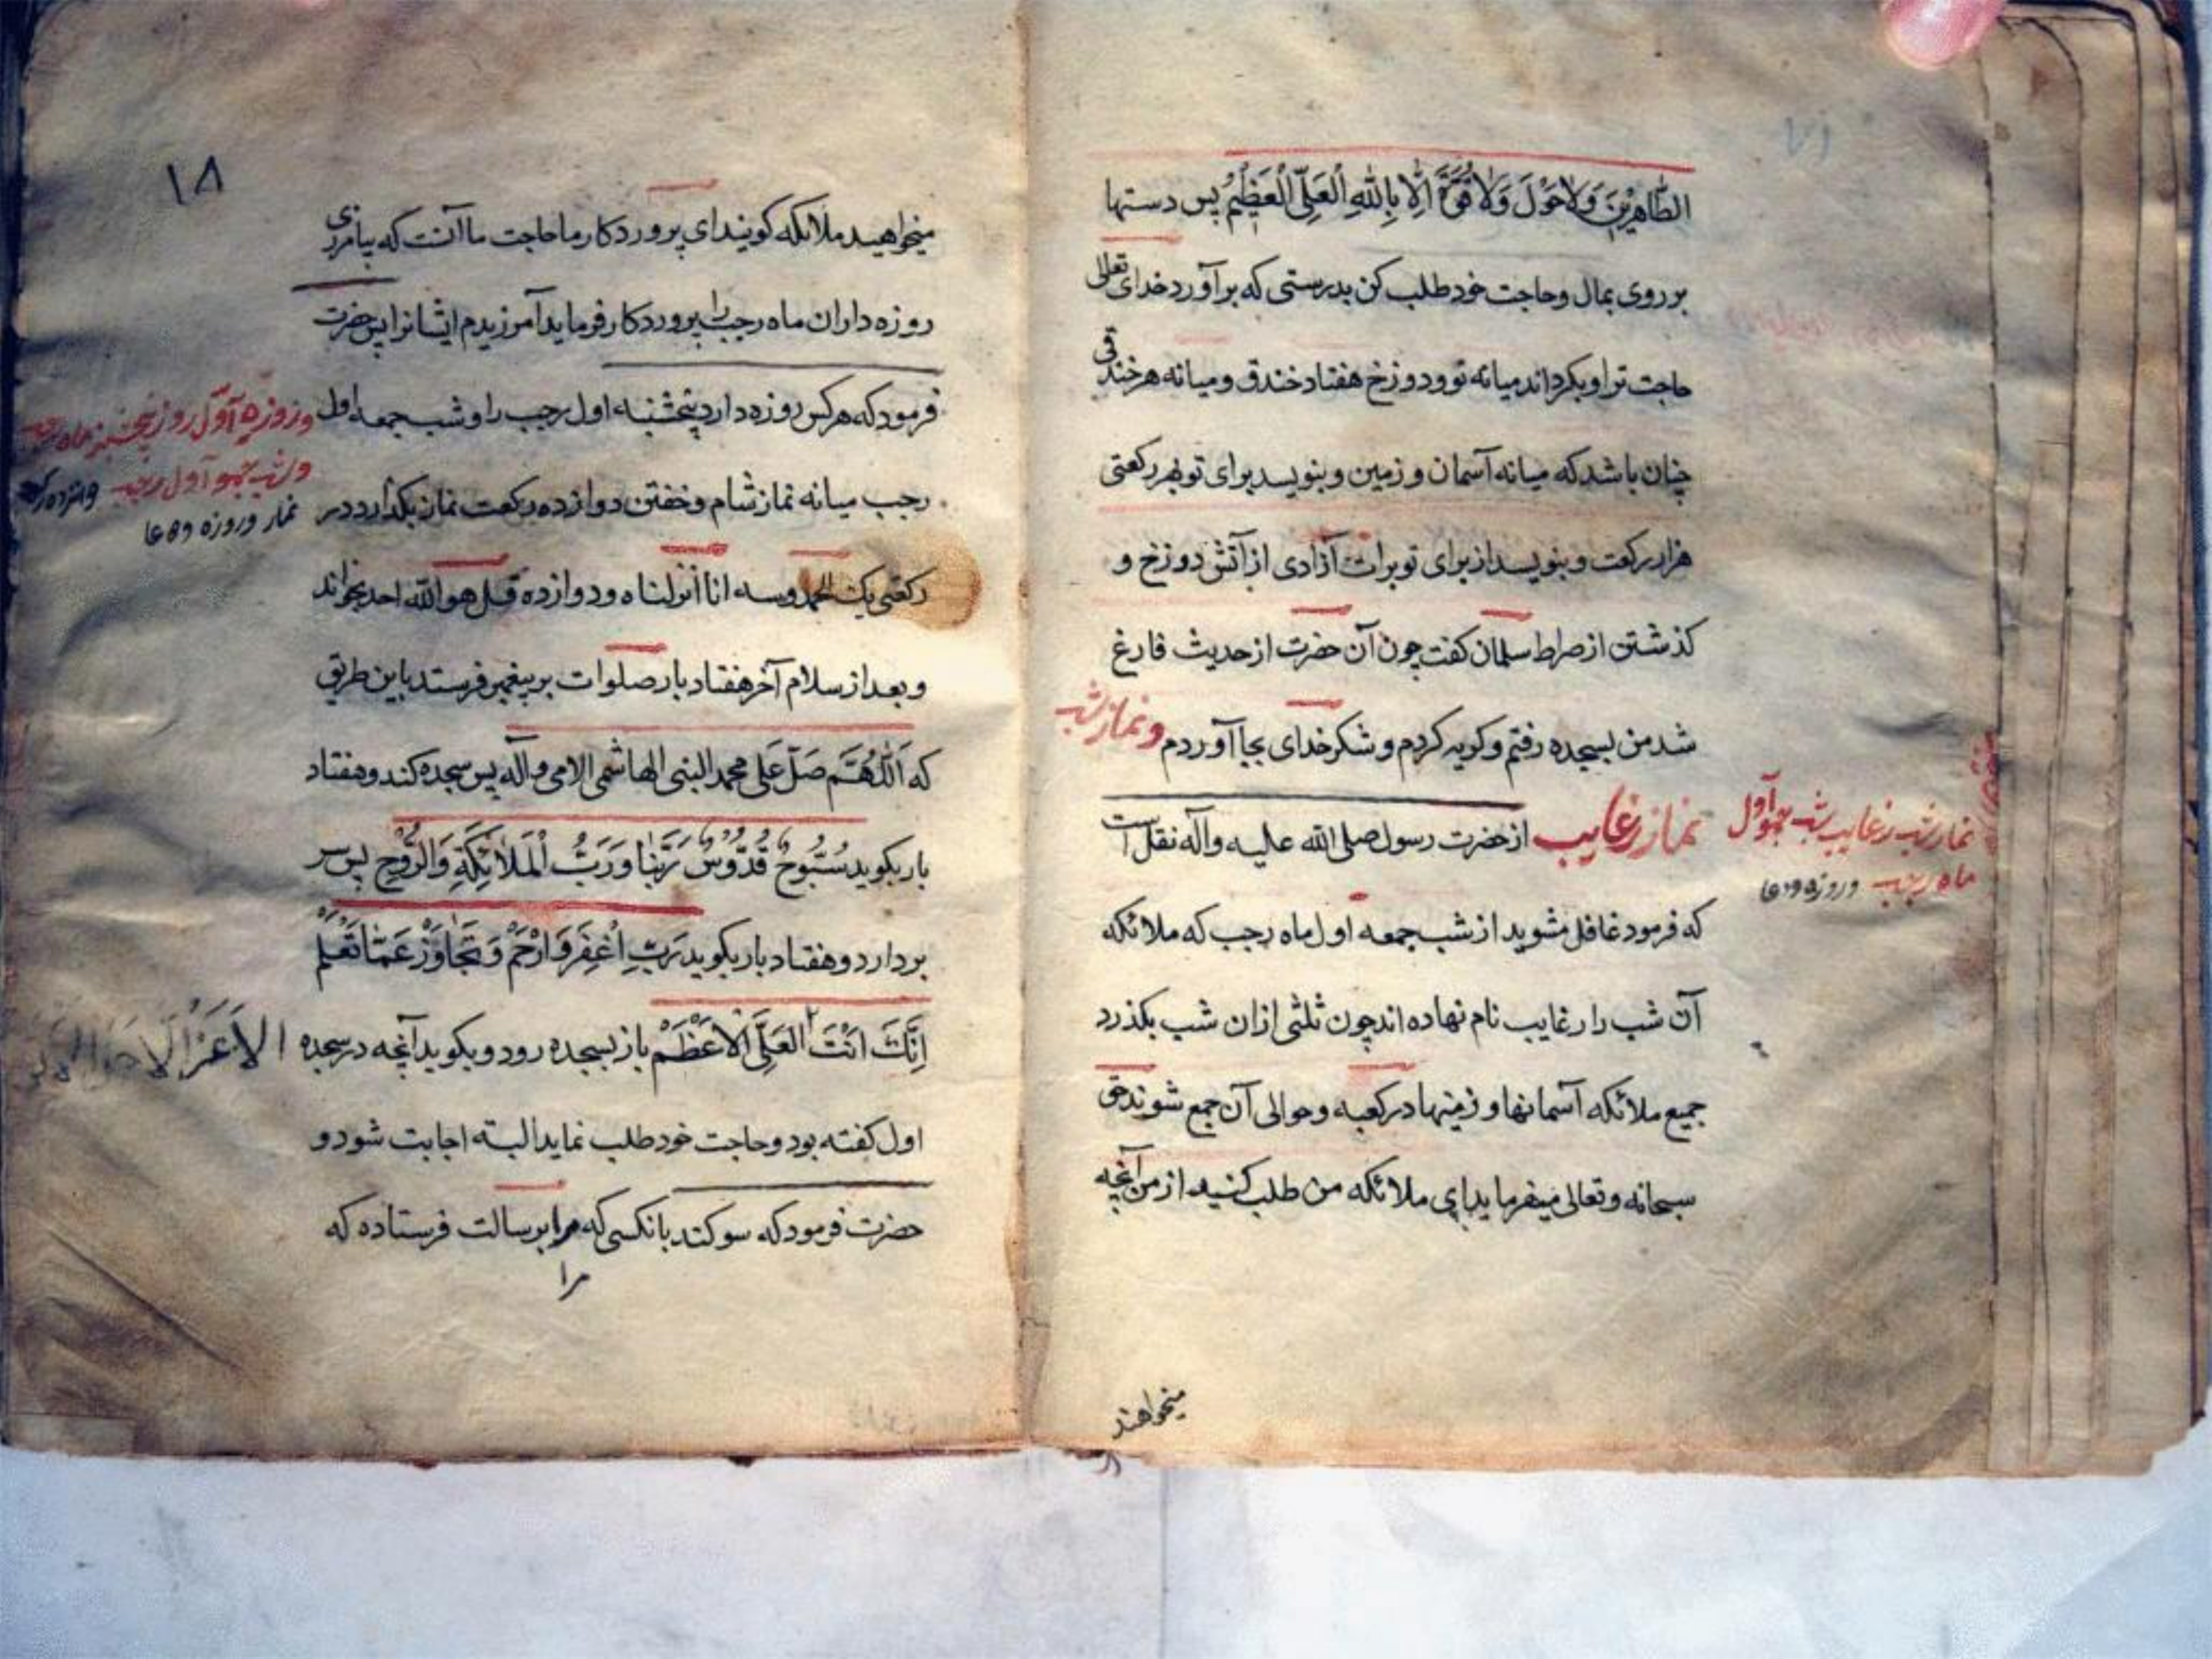 الطَّاهِرِينَ وَلَاحَوْلَ وَلَاقُوَّةَ اِلَّا بِاللهِ الْعَلِيِّ الْعَظِيمِ پس دستها
بر روی بمال و حاجت خود طلب کن بدرستی که برآورد خدای تعالی
حاجت ترا و بکرداند میانه تو و دوزخ هفتاد خندق و میانه هر خندقی
چنان باشد که میانه آسمان و زمین و بنویسد برای تو بهر رکعتی
هزار رکعت و بنویسد از برای تو برات آزادی از آتش دوزخ و
کذشتن از صراط سلمان کفت چون آن حضرت از حدیث فارغ
شد من بسجده رفتم و کریه کردم و شکر خدای بجا آوردم و نماز شب
نماز رغایب از حضرت رسول صلی الله علیه و آله نقل است
نماز شب رغایب شب جمعه آول
ماه رجب و روزه و دعا
که فرمود غافل مشوید از شب جمعه اول ماه رجب که ملائکه
آن شب را رغایب نام نهاده اند چون ثلثی ازان شب بکذرد
جمیع ملائکه آسمانها و زمینها در کعبه و حوالی آن جمع شوند حق
سبحانه و تعالی میفرماید ای ملائکه من طلب کنید از من آنچه
میخواهند
۱۸
میخواهید ملائکه کویند ای پروردکار ما حاجت ما آنست که بیامرزی
روزه داران ماه رجب را پروردکار فرماید آمرزیدم ایشانرا پس حضرت
فرمود که هرکس روزه دارد پنجشنبه اول رجب را و شب جمعه اول
و روزه آوّل روز پنجشنبه ماه رجب
و شب جمعه آول رجب
نماز و روزه و دعا
رجب میانه نماز شام و خفتن دوازده رکعت نماز بکذارد در
رکعتی یک الحمد و سه انا انزلناه و دوازده قل هو الله احد بخواند
و بعد از سلام آخر هفتاد بار صلوات بر پیغمبر فرستد باین طریق
که اَللّٰهُمَّ صَلِّ عَلی محمد النبی الهاشمی الامی و آله پس سجده کند و هفتاد
بار بکوید سُبُّوحٌ قُدُّوسٌ رَبُّنَا وَرَبُّ الْمَلَائِكَةِ وَالرُّوحِ پس سر
بردارد و هفتاد بار بکوید رَبِّ اغْفِرْ وَارْحَمْ وَتَجَاوَزْ عَمَّا تَعْلَمُ
اِنَّكَ اَنْتَ الْعَلِيُّ الْاَعْظَمْ باز بسجده رود و بکوید آنچه در سجده
اول کفته بود و حاجت خود طلب نماید البته اجابت شود و
حضرت فرمود که سوکند بانکسی که مرا برسالت فرستاده که
مرا